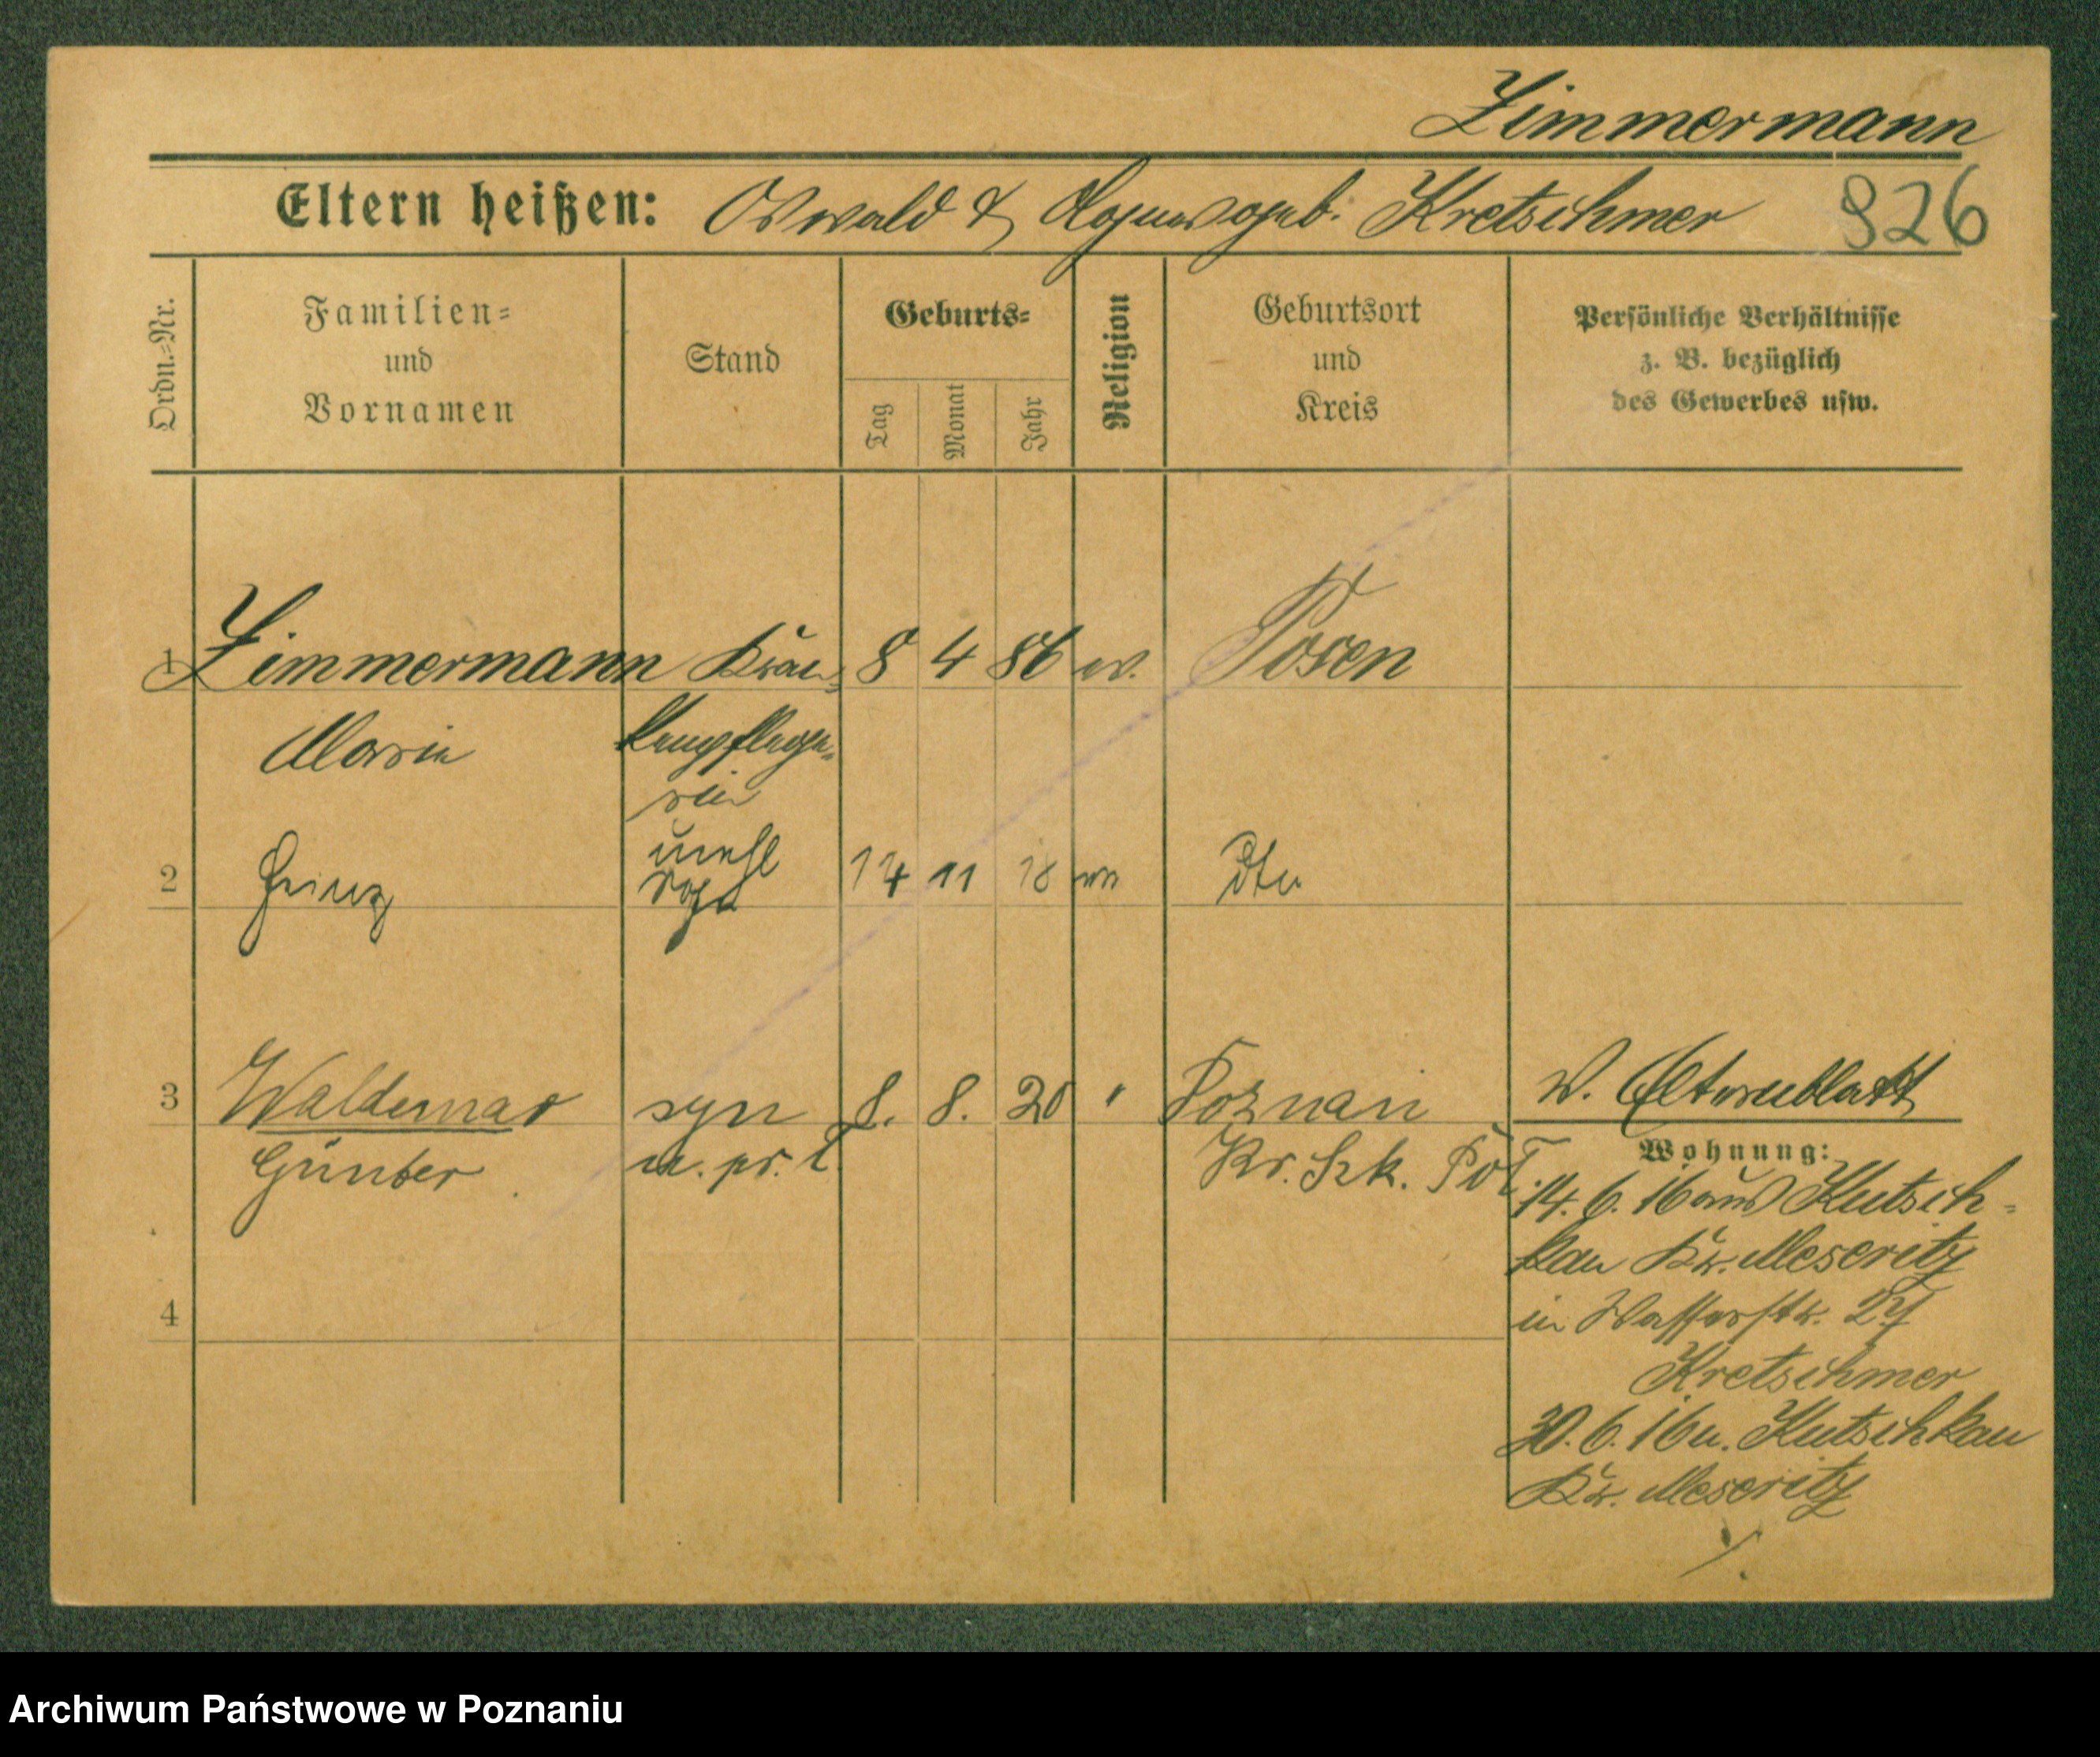 Zimmermann
Eltern heißen: Oswald & Agnes geb. Kretschmer 926
Ordn.=Nr.
Familien=
und
Vornamen
Stand
Geburts=
Tag
Monat
Jahr
Religion
Geburtsort
und
Kreis
Persönliche Verhältnisse
z. B. bezüglich
des Gewerbes usw.
1 Zimmermann Kran= 8 4 86 ev. Posen
Marie kenpflege=
rin
2 Heinz unehl 14 11 18 dto
3 Waldemar syn 8. 8. 20 " Poznań v. Elternblatt
Günter n. pr. Kr. Szk.
Wohnung:
14. 6. 16 aus Kutsch=
kau Kr. Meseritz
in Wasserstr. 27
Kretschmer
30. 6. 16 n. Kutschkau
Kr. Meseritz
4
Archiwum Państwowe w Poznaniu